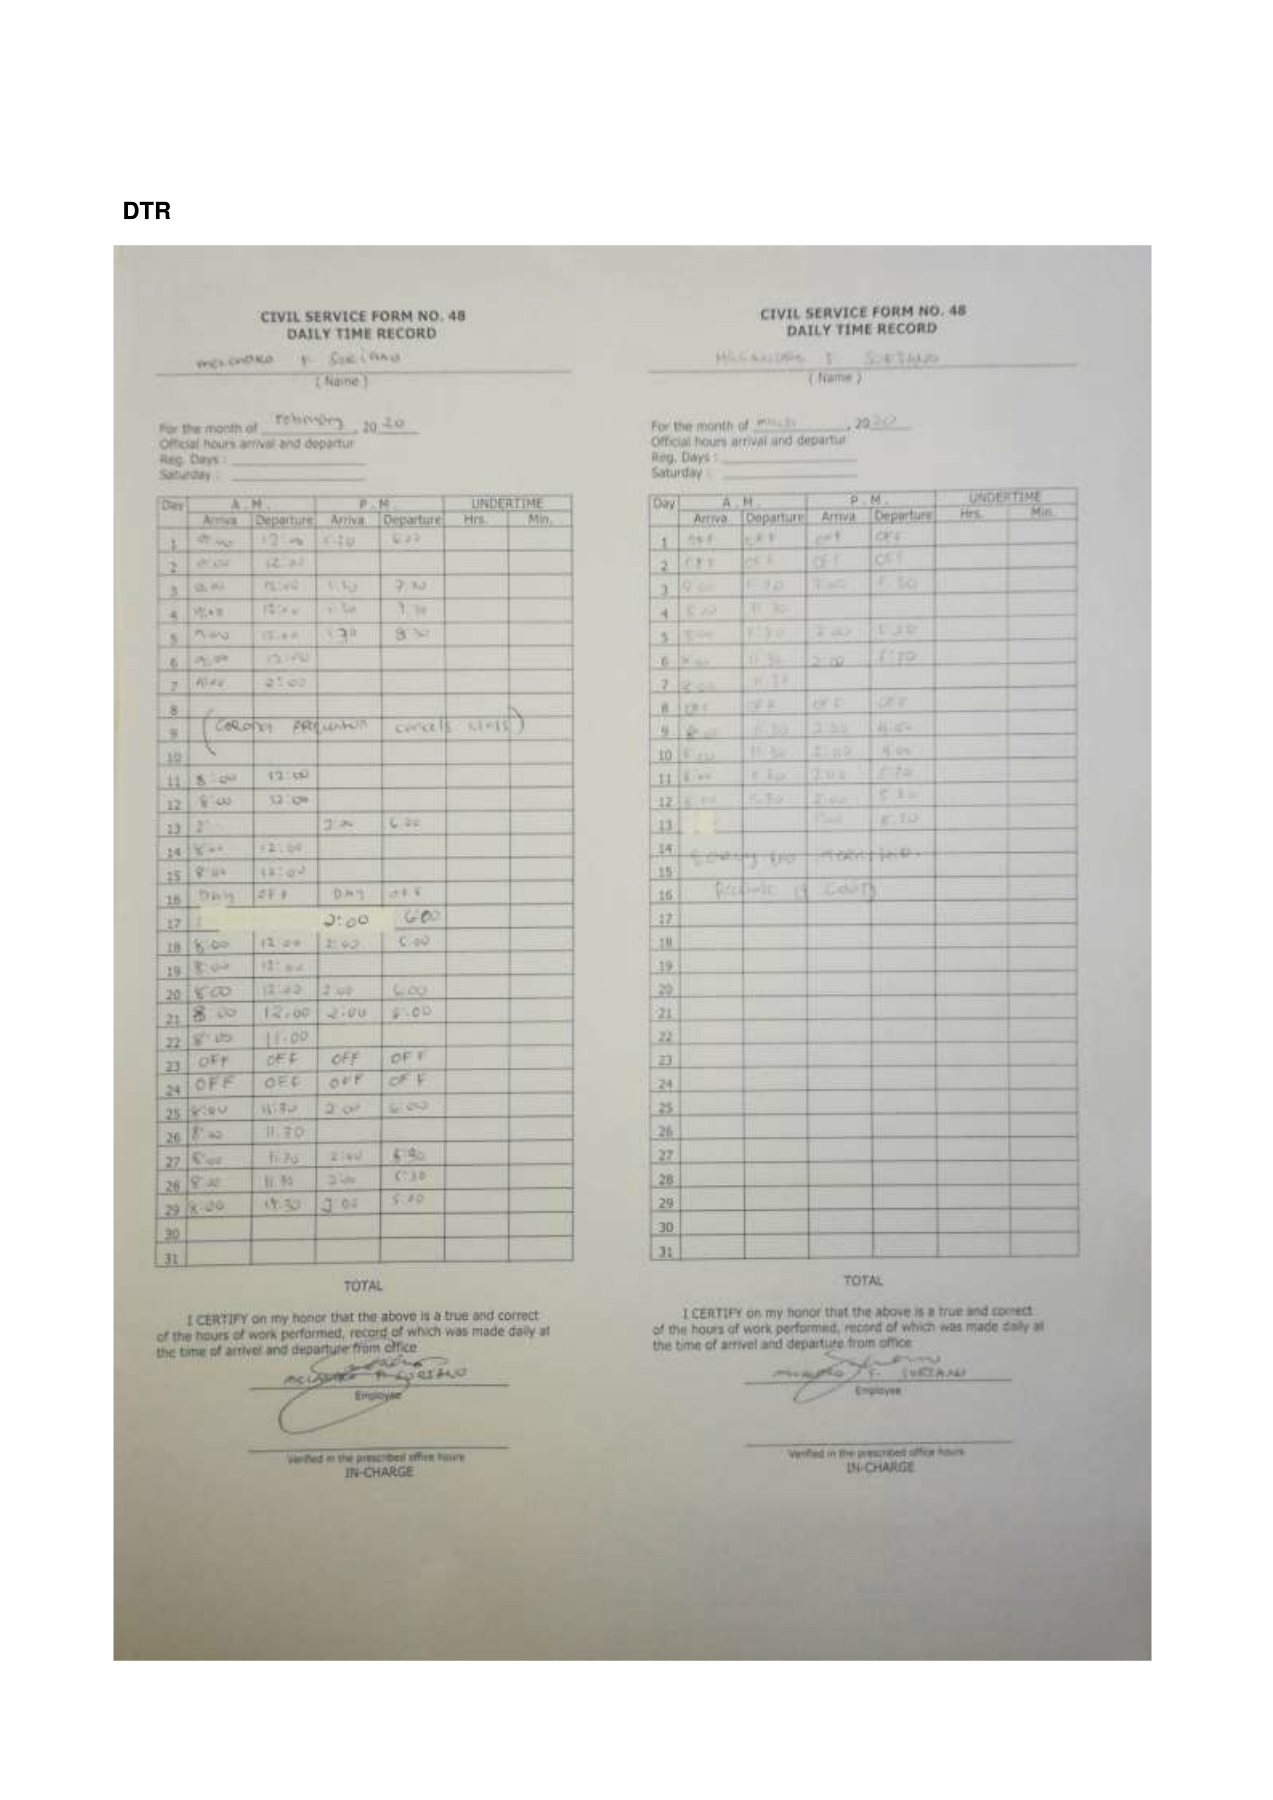 DTR
CIVIL SERVICE FORM NO. 48
DAILY TIME RECORD
F. SORIANO
( Name )
For the month of February, 20 20
Official hours arrival and departur
Reg. Days :
Saturday :
Day A . M . P . M . UNDERTIME
Arriva Departure Arriva Departure Hrs. Min.
1 1:30 6:00
2 12:00
3 12:00 1:30 7:30
4 12:00 1:30 7:30
5 12:00 1:30 8:30
6 12:00
7 2:00
8
9 cancels class)
10
11 8:00 12:00
12 8:00 12:00
13 2:00 6:00
14 8:00 12:00
15 8:00 12:00
16 DAY OFF DAY OFF
17 2:00 6:00
18 8:00 12:00 2:00 6:00
19 8:00 12:00
20 8:00 12:00 2:00 6:00
21 8:00 12:00 2:00 6:00
22 8:00 11:00
23 OFF OFF OFF OFF
24 OFF OFF OFF OFF
25 8:00 11:30 2:00 6:00
26 8:00 11:30
27 8:00 11:30 2:00 5:30
28 8:00 11:30 2:00 5:30
29 8:00 11:30 2:00 5:00
30
31
TOTAL
I CERTIFY on my honor that the above is a true and correct
of the hours of work performed, record of which was made daily at
the time of arrivel and departure from office
F. SORIANO
Employee
Verified in the prescribed office hours
IN-CHARGE
CIVIL SERVICE FORM NO. 48
DAILY TIME RECORD
F. SORIANO
( Name )
For the month of March, 20 20
Official hours arrival and departur
Reg. Days :
Saturday :
Day A . M . P . M . UNDERTIME
Arriva Departure Arriva Departure Hrs. Min.
1 OFF OFF OFF OFF
2 OFF OFF OFF OFF
3 8:00 2:00 5:30
4 8:00 11:30
5 8:00 2:00 5:30
6 11:30 2:00 5:30
7 8:00 11:30
8 OFF OFF OFF OFF
9 8:00 11:30 2:00
10 8:00 11:30 2:00
11 8:00 2:00 5:30
12 8:00 2:00 5:30
13 5:30
14
15
16
17
18
19
20
21
22
23
24
25
26
27
28
29
30
31
TOTAL
I CERTIFY on my honor that the above is a true and correct
of the hours of work performed, record of which was made daily at
the time of arrivel and departure from office
F. SORIANO
Employee
Verified in the prescribed office hours
IN-CHARGE